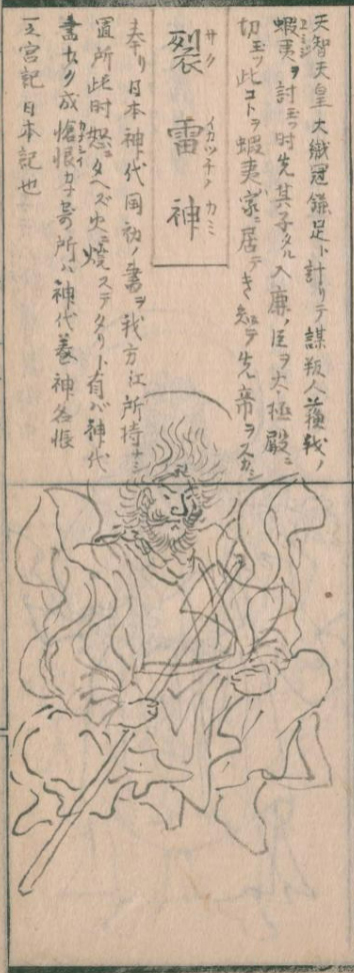 天智天皇大織冠鎌足ト計リテ謀叛人蘓我ノ
蝦夷ヲ討玉フ時先其子タル入鹿ノ臣ヲ大極殿ニ
切玉フ此コトヲ蝦夷家ニ居テき知テ先帝ヲ
裂雷神
サクイカツチノカミ
奉リ日本神代国初ノ書ヲ我方江所持ナシ
置所此時怒ニタヘズ火ニ焼ステタリト有ハ神代
書少ク成愴恨カナ号所ハ神代巻神名帳
王宮記日本記也